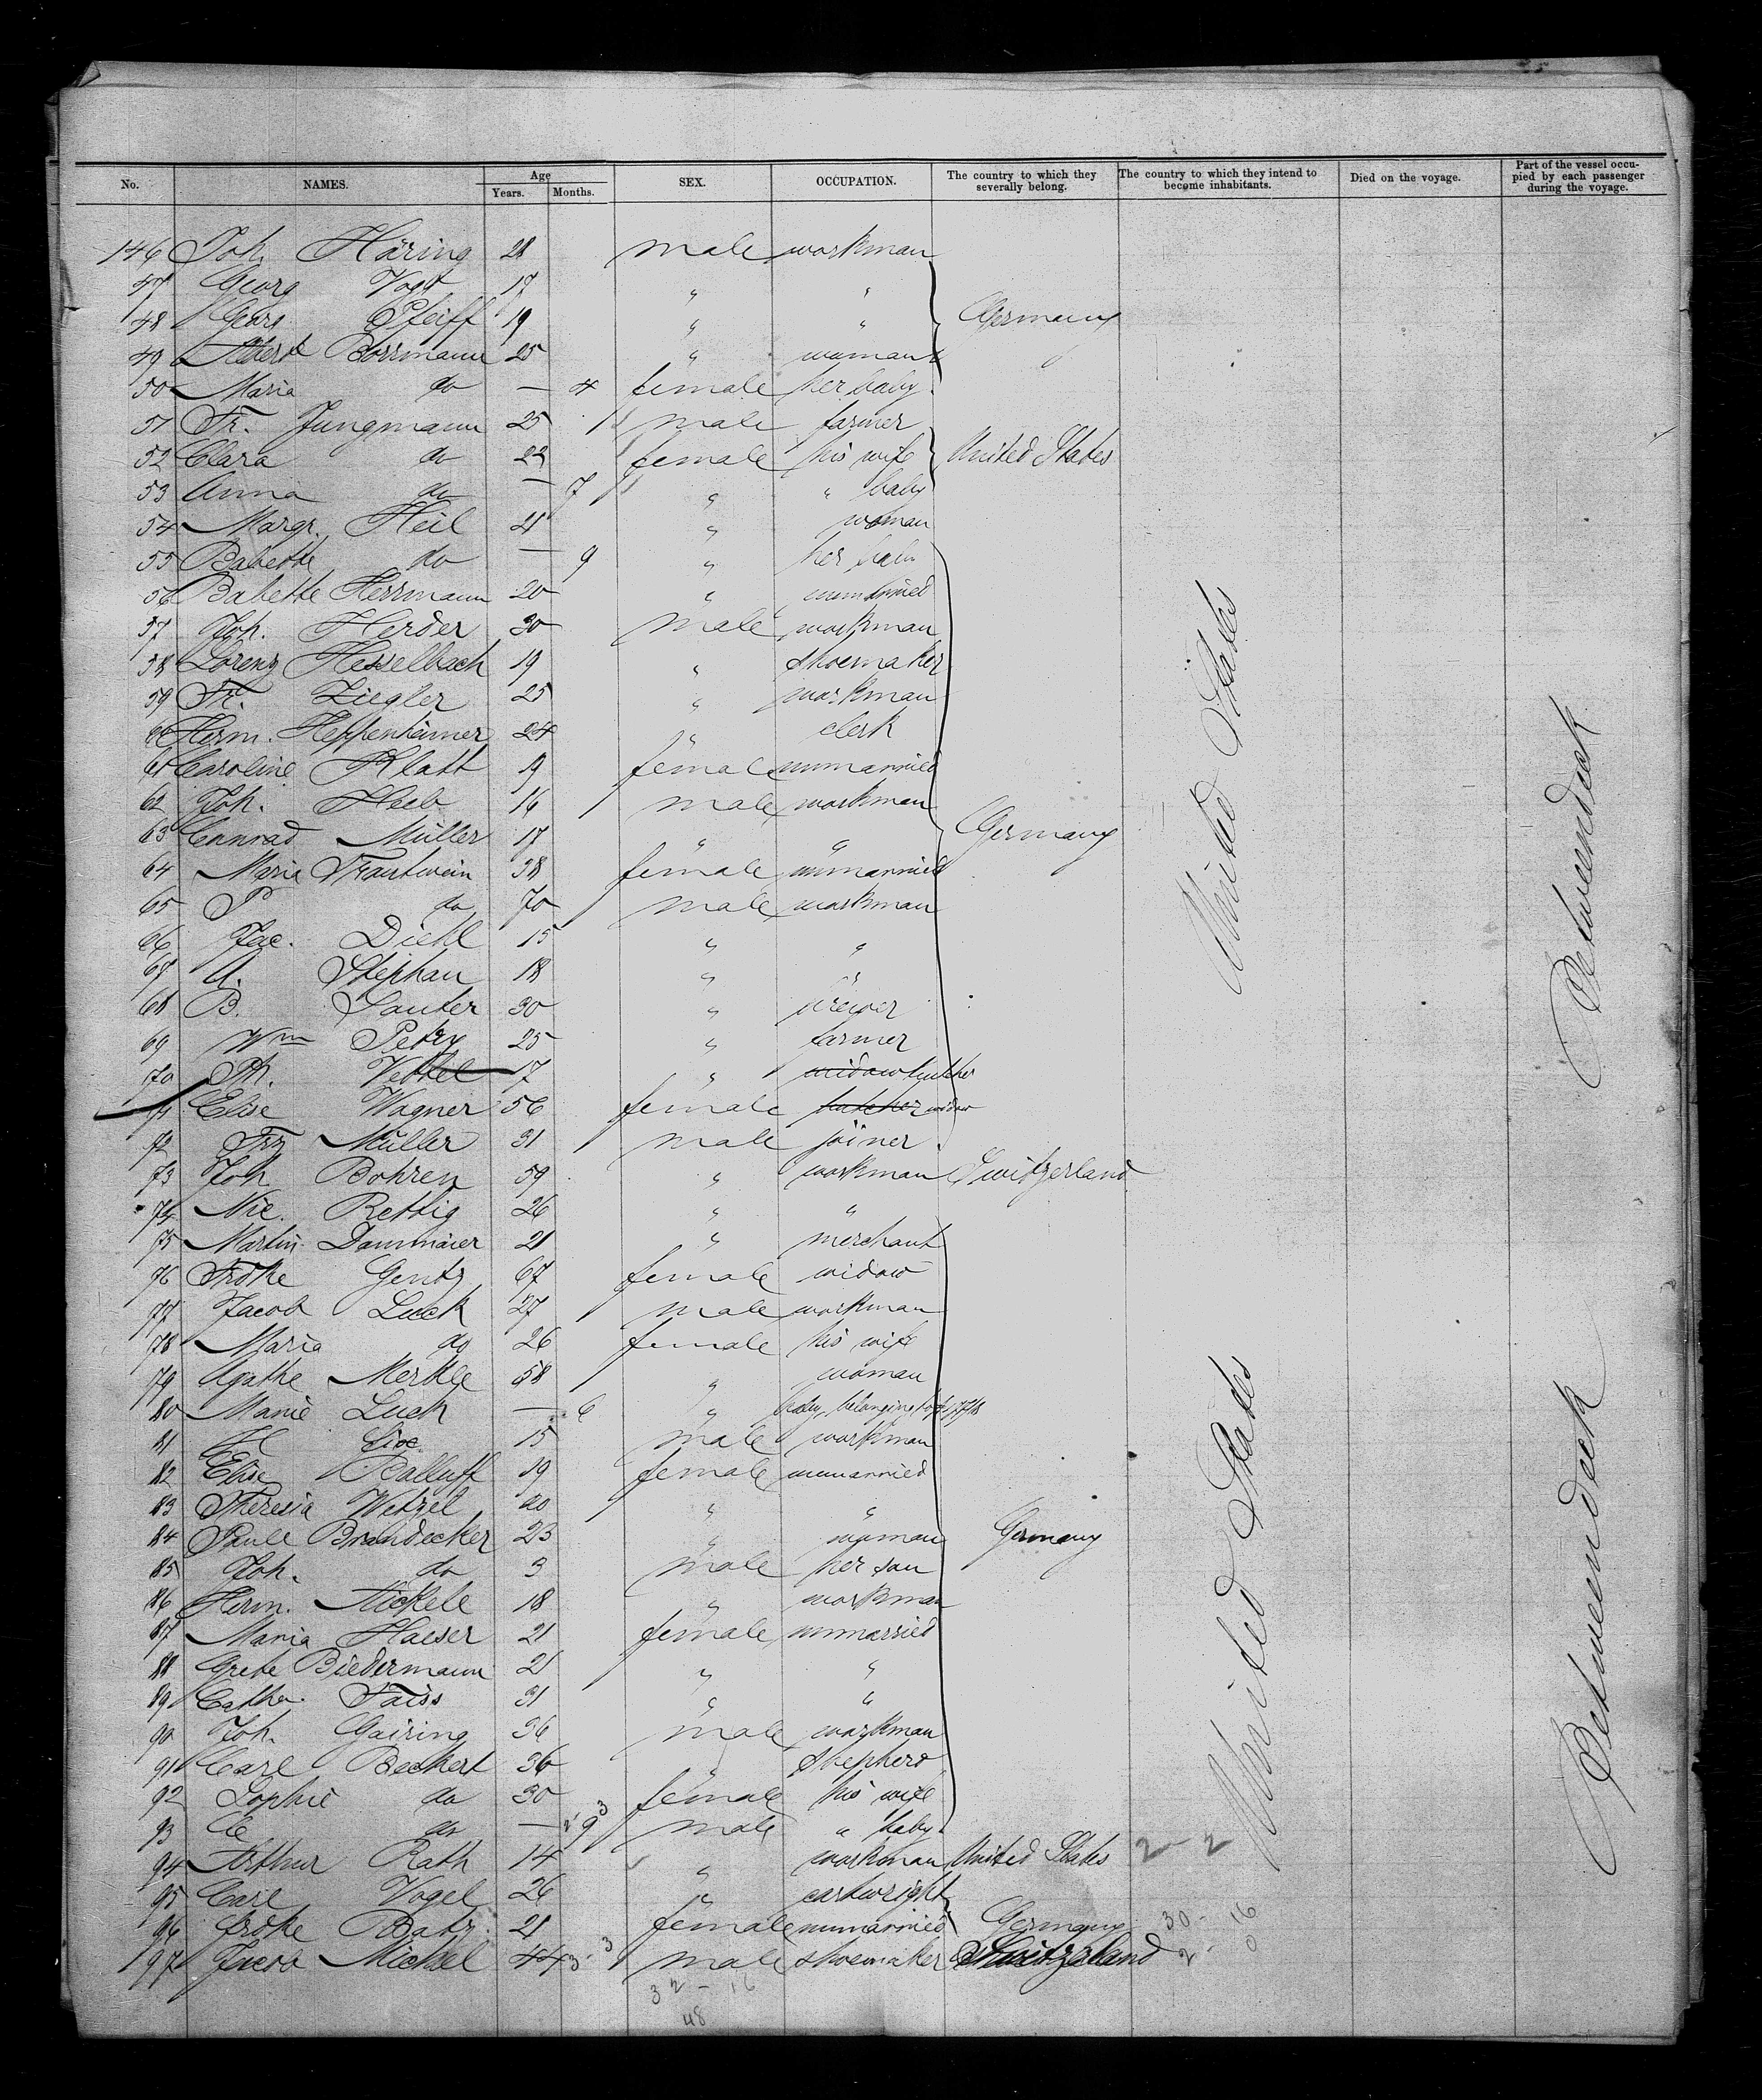 No. NAMES. Age Years. Months. SEX. OCCUPATION. The country to which they severally belong. The country to which they intend to become inhabitants. Died on the voyage. Part of the vessel occupied by each passenger during the voyage.
146 Joh. Häring 28 male workman
47 Georg Vogt 17 " "
48 Georg Pfeiff 19 " " Germany
49 Albert Borrmann 25 " woman
50 Maria do — 4 female her baby
51 Fr. Jungmann 25 male farmer
52 Clara do 22 female his wife United States
53 Anna do — 7 " " baby
54 Margr. Heil 21 " woman
55 Babette do — 9 " her baby
56 Babette Herrmann 20 " unmarried
57 Joh. Herder 30 male workman
58 Lorenz Hesselbach 19 " shoemaker
59 Fr. Ziegler 25 " workman
60 Herm. Heppenheimer 24 " clerk
61 Caroline Klatt 19 female unmarried
62 Joh. Heeb 16 male workman
63 Connrad Müller 17 " " Germany
64 Marie Trautwein 38 female unmarried
65 P do 70 male workman
66 Jac. Diehl 15 " "
67 A. Stephan 18 " "
68 B. Sauter 30 " brewer
69 Wm Petry 25 " farmer
70 Ph. Vettel 17 " widow butcher
71 Elise Wagner 56 female butcher widow
72 Frz Müller 31 male joiner
73 Joh Bohren 59 " workman Switzerland
74 Nic. Rettig 26 " "
75 Martin Dammaier 21 " merchant
76 Frdke Gentz 67 female widow
77 Jacob Luck 27 male workman
78 Maria do 26 female his wife
79 Agathe Merkle 58 " woman
80 Marie Luck — 6 " baby belonging to 77/78
81 15 male workman
82 Elise Balluff 19 female unmarried
83 Theresia Wetzel 20 " "
84 Paule Brandecker 23 " woman Germany
85 Joh. do 3 male her son
86 Herm. Aickele 18 " workman
87 Maria Haeser 21 female unmarried
88 Grete Biedermann 21 " "
89 Cathr. Faiss 31 " "
90 Joh. Gairing 36 male workman
91 Carl Bechert 36 " shepherd
92 Sophie do 30 female his wife
93 do — 9 male " baby
94 Arthur Rath 14 " workman United States 2 - 2
95 Carl Vogel 26 " cartwright
96 Frdke Batz 21 female unmarried Germany 30 - 16
97 Jacob Michel 44 male shoemaker Switzerland 2 - 0
32 - 16
48
United States
United States
Betweendeck
Betweendeck